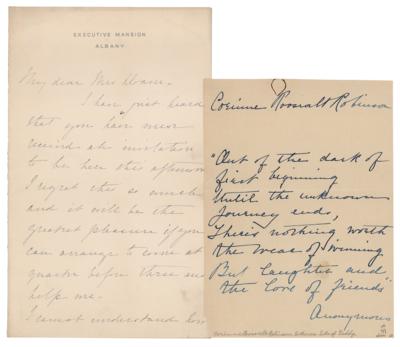 EXECUTIVE MANSION
ALBANY
My dear Mrs
I have just heard
that you have never
received an invitation
to be here this afternoon
I regret this so much
and it will be the
greatest pleasure if you
can arrange to come at
quarter before three and
help me.
I cannot understand how
Corinne Roosevelt Robinson
"Out of the dark of
first beginning
Until the unknown
Journey ends,
There's nothing worth
the wear of winning
But laughter and
the love of friends"
Anonymous
Corinne Roosevelt Robinson Sister of Teddy